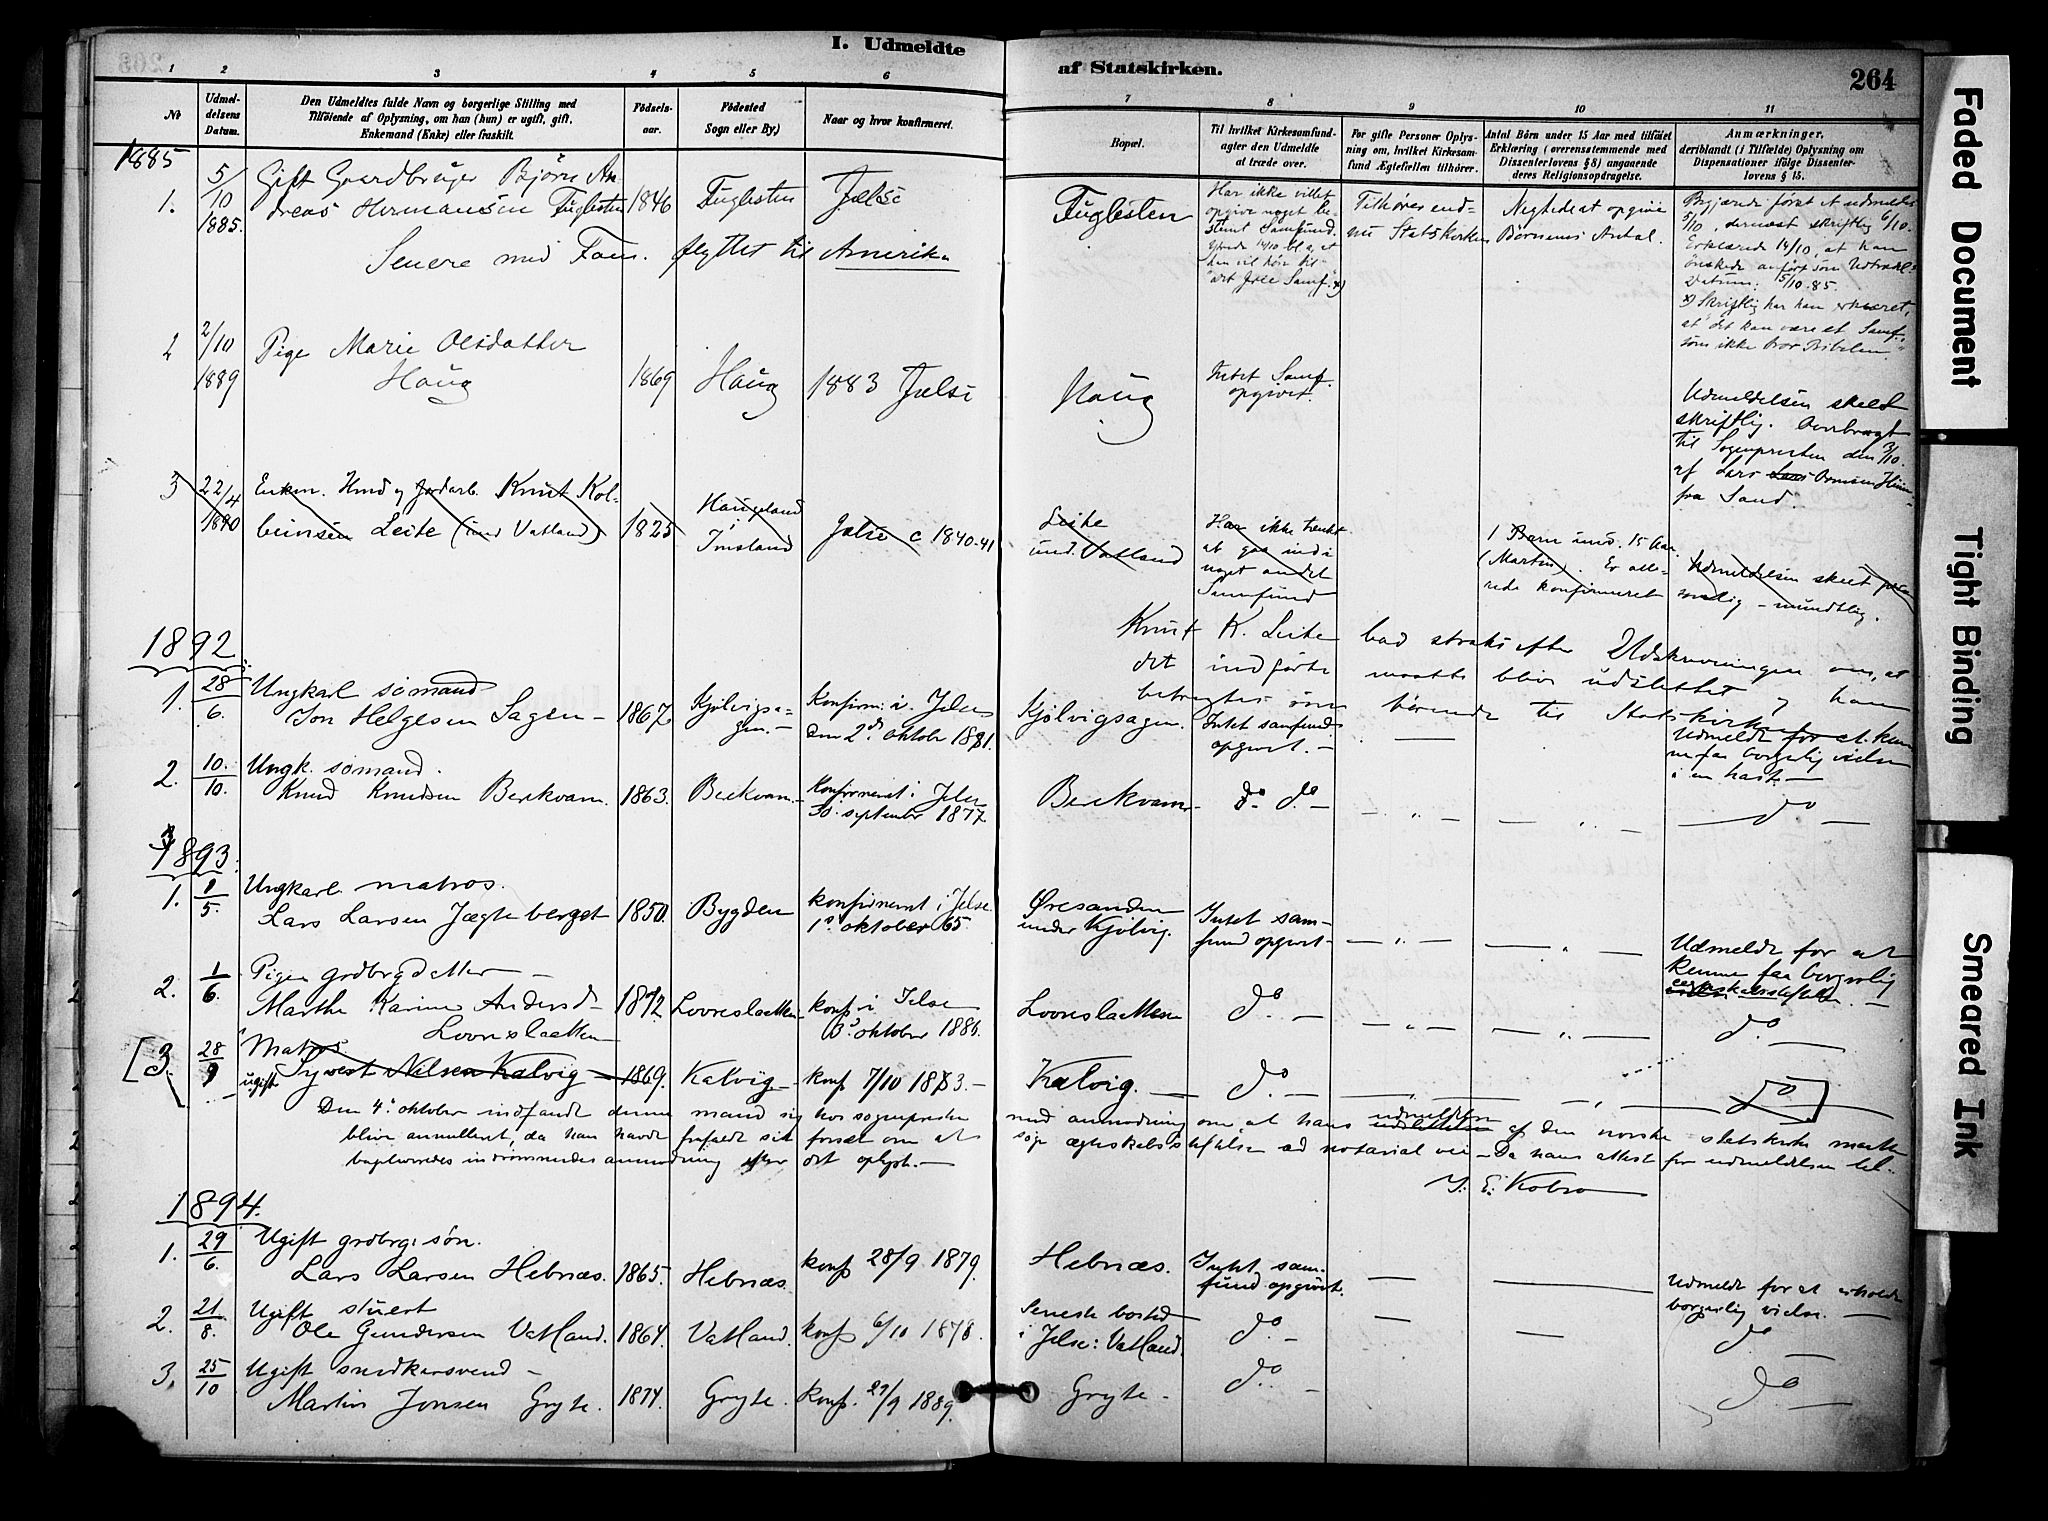 I. Udmeldte
af Statskirken.
264
1 2 3 4 5 6
7 8 9 10 11
No
Udmel-
delsens
Datum.
Den Udmeldtes fulde Navn og borgerlige Stilling med
Tilføiende af Oplysning, om han (hun) er ugift, gift,
Enkemand (Enke) eller fraskilt.
Fødsels-
aar.
Fødested
Sogn eller By,)
Naar og hvor konfirmeret.
Bopæl.
Til hvilket Kirkesamfund-
agter den Udmeldte
at træde over.
For gifte Personer Oplys-
ning om, hvilket Kirkesam-
fund Ægtefællen tilhører.
Antal Børn under 15 Aar med tilføiet
Erklæring (overensstemmende med
Dissenterloven § 8) angaaende
deres Religionsopdragelse.
Anmærkninger,
deriblandt (i Tilfælde) Oplysning om
Dispensationer ifølge Dissenter-
lovens § 15.
1885
1.
5/10
1885.
Gift Gaardbruger Bjørn An-
dreas Hermansen Fuglesten
1846
Fuglesten
Jælse
Senere med Fam. flyttet til Amerika
Fuglesten
Har ikke villet
opgive noget be-
stemt Samfund.
Tilhører end-
nu Statskirken
Negtede at opgive
Børnenes Antal.
Begjærede først at udmeldes
5/10, dernæst skriftlig 6/10.
Erklærede 14/10, at han
ønskede anført som
Datum: 5/10.85.
x) Skriftlig har han erklæret,
at det kan være et Samf.
som ikke
2
2/10
1889
Pige Marie Olsdatter
Haug
1869
Haug
1883 Jælse
Haug
Intet Samf.
opgivet.
Udmeldelsen skeet
skriftlig. Overbragt
til Sogneprsten den 3/10.
af Lars
fra Sand.
3
22/4
1890
Enkem. Husm. og Jordarb. Knut Kol-
beinsen Leite (und Vatland)
1825
Haugeland
i
Imsland
Jælse c 1840-41
Leite
und. Vatland
Har ikke tænkt
at gaa ind i
noget andet
Samfund
1 Barn und. 15 Aar.
(Martin). Er alle-
rede konfirmeret
Udmeldelsen skeet per-
sonlig - mundtlig.
Knut K. Leite bad straks efter Udskrivningen om, at
det indførte maatte blive udslettet og han
betragtes som hørende til Statskirken
1892.
1.
28/6.
Ungkarl sømand
Jon Helgesen Sagen -
1867
Kjølvigsa-
gen. -
Konfirm: i Jelse
den 2d oktober 1881.
Kjølvigsagen.
Intet samfund
opgivet. -
Udmeldt for at kun-
ne faa borgerlig vielse
i en hast. -
2.
10./10.
Ungk. sømand.
Knud Knudsen Berekvam.
1863.
Berekvam. -
Konfirmeret i Jelse
30. september 1877.
Berekvam
do do -
do -
1893.
1.
1/5.
Ungkarl matros.
Lars Larsen Jægteberget
1850.
Bygden
konfirmeret i Jelse
1s oktober 65.
Øresanden
under Kjølvig.
Intet sam-
fund opgivet -
Udmeldt for at
kunne faa borgerlig
2.
1/6.
Pigen grdbrgdatter -
Marthe Karine Andersd -
Lovreslaetten
1872.
Lovreslaetten -
konf i Jelse
3d oktober 1886.
Lovreslaetten
do. -
do. -
[3.
28/9
ugift
Matros
Syvert Nelsen Kalvig -
1869.
Kalvig -
konf 7/10 1883. -
Kalvig. -
do. -
do
Den 4d oktober indfandt denne mand sig hos sognepresten med anmodning om, at hans udmeldelse af den norske statskirke maatte
blive annulleret, da han havde frafaldt sit forsæt om at søge ægteskabsstiftelse ad notarial vei - Da hans attest for udmeldelsen til-
bageleveredes imødekommedes anmodning efter det oplyste. -
J. E. Kobro
1894.
1.
29/6.
Ugift grdbrg: søn.
Lars Larsen Hebnæs.
1865.
Hebnæs.
konf 28/9 1879.
Hebnæs.
Intet sam-
fund opgivet.
Udmeldt for at erholde
borgerlig vielse. -
2.
21./8.
Ugift stuert
Ole Gundersen Vatland.
1864.
Vatland.
konf 6/10 1878.
Seneste bosted
i Jelse: Vatland.
do. -
do. -
3.
25/10
Ugift snedkersvend -
Martin Jonsen Gryte.
1874.
Gryte.
konf. 29/9 1889.
Gryte -
do. -
do -
Faded Document
Tight Binding
Smeared Ink